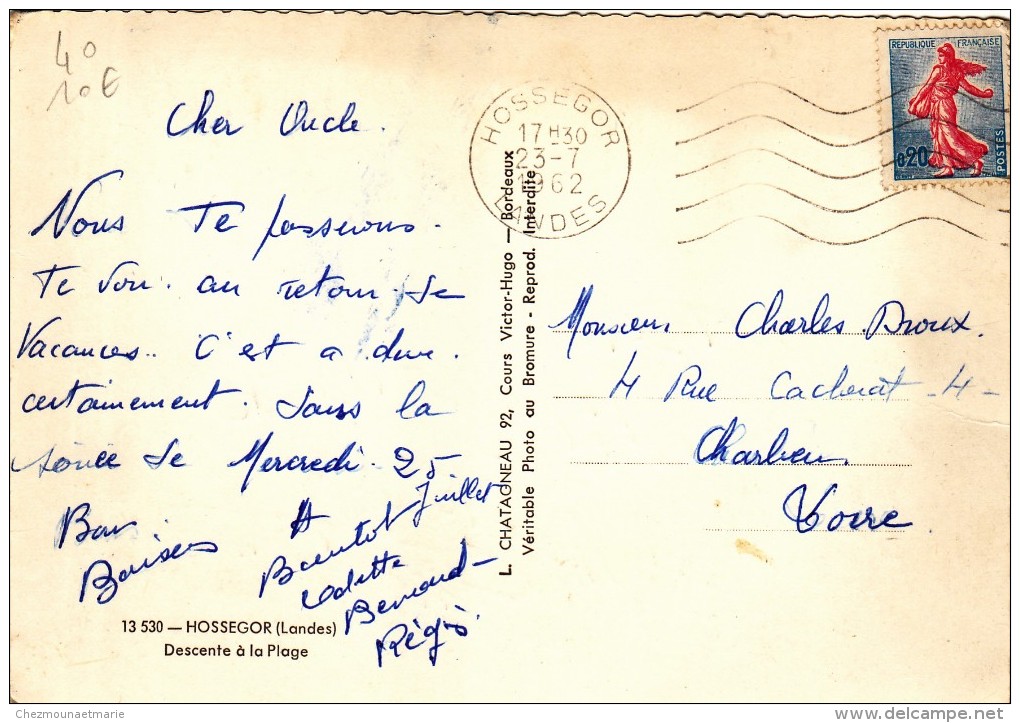 40
10€
Cher Oncle.
Nous Te passerons
Te voir au retour de
Vacances. C'est a dire
certainement dans la
soirée de Mercredi 25
Juillet
Bons
Baisers
A
Bientot
Odette
Bernard
Régis
13 530 — HOSSEGOR (Landes)
Descente à la Plage
L. CHATAGNEAU 92, Cours Victor-Hugo — Bordeaux
Véritable Photo au Bromure - Reprod. Interdite
HOSSEGOR
17H30
23-7
1962
LANDES
REPUBLIQUE FRANÇAISE
0,20
POSTES
Monsieur Charles Droux.
4 Rue Cacherat -4-
Charlieu
Loire
Chezmounaetmarie
delcampe.net